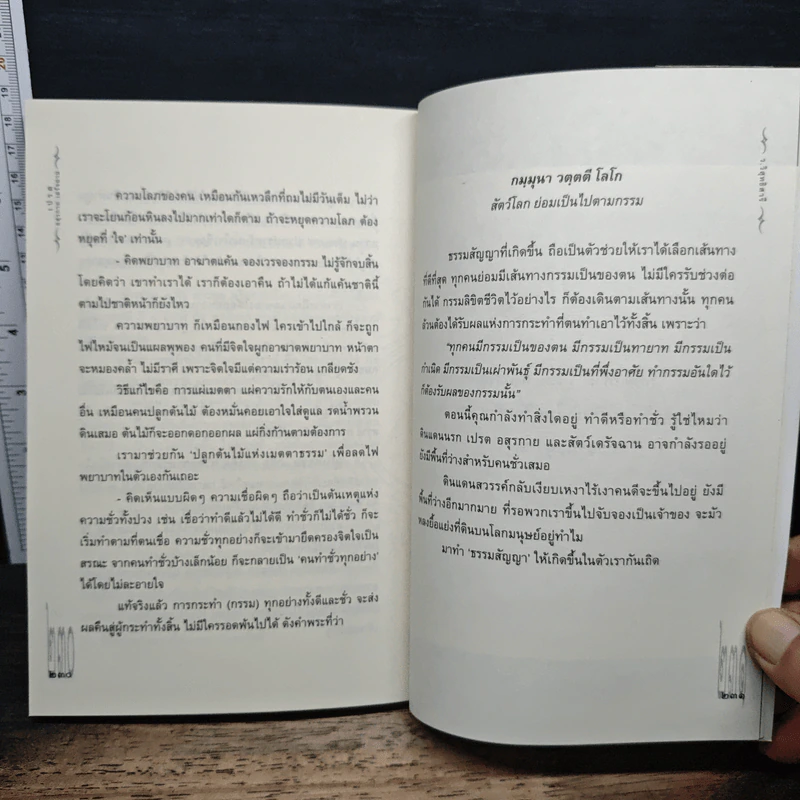 ความโลภของคน เหมือนกันเหวลึกที่ถมไม่มีวันเต็ม ไม่ว่า
เราจะโยนก้อนหินลงไปมากเท่าใดก็ตาม ถ้าจะหยุดความโลภ ต้อง
หยุดที่ 'ใจ' เท่านั้น
- คิดพยาบาท อาฆาตแค้น จองเวรจองกรรม ไม่รู้จักจบสิ้น
โดยคิดว่า เขาทำเราได้ เราก็ต้องเอาคืน ถ้าไม่ได้แก้แค้นชาตินี้
ตามไปชาติหน้าก็ยังไหว
ความพยาบาท ก็เหมือนกองไฟ ใครเข้าไปใกล้ ก็จะถูก
ไฟไหม้จนเป็นแผลพุพอง คนที่มีจิตใจผูกอาฆาตพยาบาท หน้าตา
จะหมองคล้ำ ไม่มีราศี เพราะจิตใจมีแต่ความเร่าร้อน เกลียดชัง
วิธีแก้ไขคือ การแผ่เมตตา แผ่ความรักให้กับตนเองและคน
อื่น เหมือนคนปลูกต้นไม้ ต้องหมั่นคอยเอาใจใส่ดูแล รดน้ำพรวน
ดินเสมอ ต้นไม้ก็จะออกดอกออกผล แผ่กิ่งก้านตามต้องการ
เรามาช่วยกัน 'ปลูกต้นไม้แห่งเมตตาธรรม' เพื่อลดไฟ
พยาบาทในตัวเองกันเถอะ
- คิดเห็นแบบผิดๆ ความเชื่อผิดๆ ถือว่าเป็นต้นเหตุแห่ง
ความชั่วทั้งปวง เช่น เชื่อว่าทำดีแล้วไม่ได้ดี ทำชั่วก็ไม่ได้ชั่ว ก็จะ
เริ่มทำตามที่ตนเชื่อ ความชั่วทุกอย่างก็จะเข้ามายึดครองจิตใจเป็น
สรณะ จากคนทำชั่วบ้างเล็กน้อย ก็จะกลายเป็น 'คนทำชั่วทุกอย่าง'
ได้โดยไม่ละอายใจ
แท้จริงแล้ว การกระทำ (กรรม) ทุกอย่างทั้งดีและชั่ว จะส่ง
ผลคืนสู่ผู้กระทำทั้งสิ้น ไม่มีใครรอดพ้นไปได้ ดังคำพระที่ว่า
๒๓๐
กมฺมุนา วตฺตตี โลโก
สัตว์โลก ย่อมเป็นไปตามกรรม
ธรรมสัญญาที่เกิดขึ้น ถือเป็นตัวช่วยให้เราได้เลือกเส้นทาง
ที่ดีที่สุด ทุกคนย่อมมีเส้นทางกรรมเป็นของตน ไม่มีใครรับช่วงต่อ
กันได้ กรรมลิขิตชีวิตไว้อย่างไร ก็ต้องเดินตามเส้นทางนั้น ทุกคน
ล้วนต้องได้รับผลแห่งการกระทำที่ตนทำเอาไว้ทั้งสิ้น เพราะว่า
"ทุกคนมีกรรมเป็นของตน มีกรรมเป็นทายาท มีกรรมเป็น
กำเนิด มีกรรมเป็นเผ่าพันธุ์ มีกรรมเป็นที่พึ่งอาศัย ทำกรรมอันใดไว้
ก็ต้องรับผลของกรรมนั้น"
ตอนนี้คุณกำลังทำสิ่งใดอยู่ ทำดีหรือทำชั่ว รู้ใช่ไหมว่า
ดินแดนนรก เปรต อสุรกาย และสัตว์เดรัจฉาน อาจกำลังรออยู่
ยังมีพื้นที่ว่างสำหรับคนชั่วเสมอ
ดินแดนสวรรค์กลับเงียบเหงาไร้เงาคนดีจะขึ้นไปอยู่ ยังมี
พื้นที่ว่างอีกมากมาย ที่รอพวกเราขึ้นไปจับจองเป็นเจ้าของ จะมัว
หลงยื้อแย่งที่ดินบนโลกมนุษย์อยู่ทำไม
มาทำ 'ธรรมสัญญา' ให้เกิดขึ้นในตัวเรากันเถิด
๒๓๑